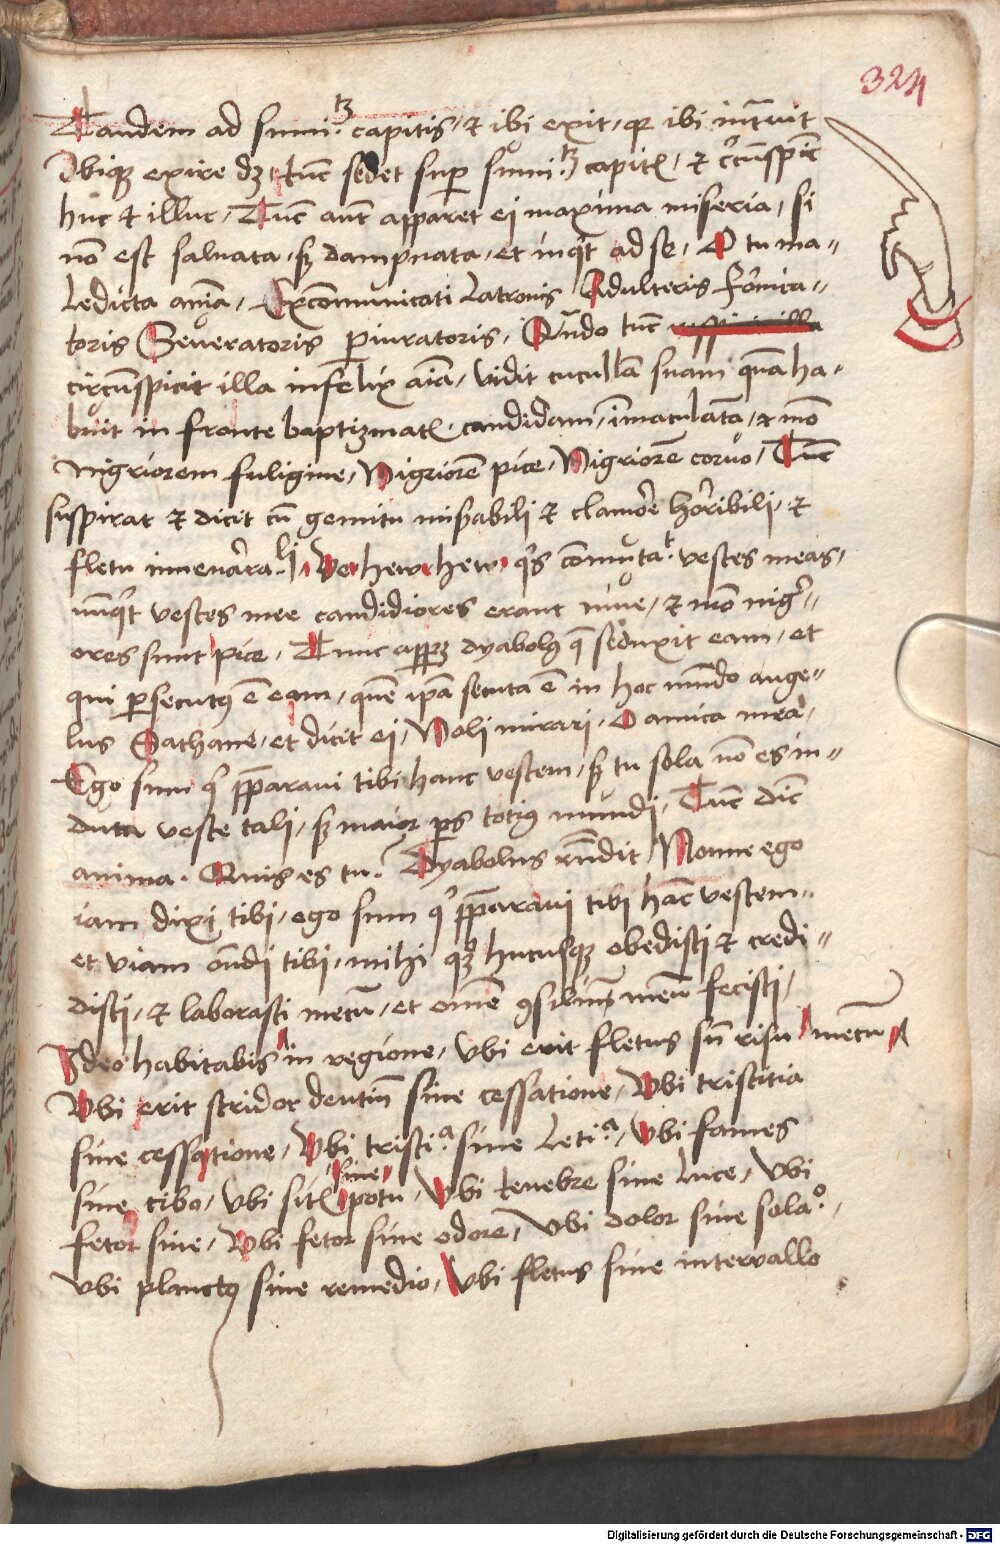 324
Tandem ad sum̄itꝫ capitis, et ibi exit, quia ibi int͛uit
Ibique exire dꝫ tūc sedet sup̱ sum̄itꝫ capitꝭ, et c͛cūspic̄
huc et illuc, Tūc aut̄ apparet ei maxima miseria, si
nō est saluata, sꝫ dampnata, et inq̊t ad se, O tu ma-
ledicta aīa, Excōmunicati Latronis Adulteris forni͛ca-
toris Seueratoris ꝑiuratoris, Qn̄do tūc
circūspicit illa infelix aīa, vidit cucullā suam quā ha-
buit in fronte baptiꝫmatꝭ candidam, īmaculatā, et mō
nigriorem fuligine, Nigriorē pice, Nigriorē coruo, Tūc
suspirat et dicit cū gemitu mis̱abili et clamore hor͛ibili, et
fletu innenar͛a.li, Ve hew hew q͛s cōmuta.t vestes meas,
nūq͛t vestes mee candidiores erant niue, et mō nig͛-
ores sunt pice, Tunc app̱ꝫ dyabolꝰ q̄ seduxit eam, et
qui ꝑsecutꝰ ē eam, quē ip̄a secuta ē in hoc mūdo ange-
lus Sathane, et dicit ei, Noli mirari, O amica mea,
Ego sum q͛ p̄paraui tibi hanc vestem, sꝫ tu sola nō es in-
duta veste tali, sꝫ maior p̱s totiꝰ mundi, Tūc dic̄
anima. Quis es tu? Dyabolus rn̄dit Nonne ego
iam dixi tibi, ego sum q͛ p̄paraui tibi hāc vestem
et viam on̄di tibi, mihi qꝫ hucusque obedisti et credi-
disti, et laborasti mecū, et om̄e ꝯsiliū meū fecisti,
Ideo habitabis in regione, vbi erit fletus sn̄ risu mecū
Vbi erit stridor dentiū sine cessatione, Vbi tristitia
sine cessatione, Vbi tristi.a sine Leti.a, Vbi fames
sine cibo, vbi sitꝭ sine potu, Vbi tenebre sine luce, Vbi
fetor sine, Vbi fetor sine odore, Vbi dolor sine sola.o,
Vbi planctꝰ sine remedio, Vbi fletus sine interuallo
Digitalisierung gefördert durch die Deutsche Forschungsgemeinschaft - DFG